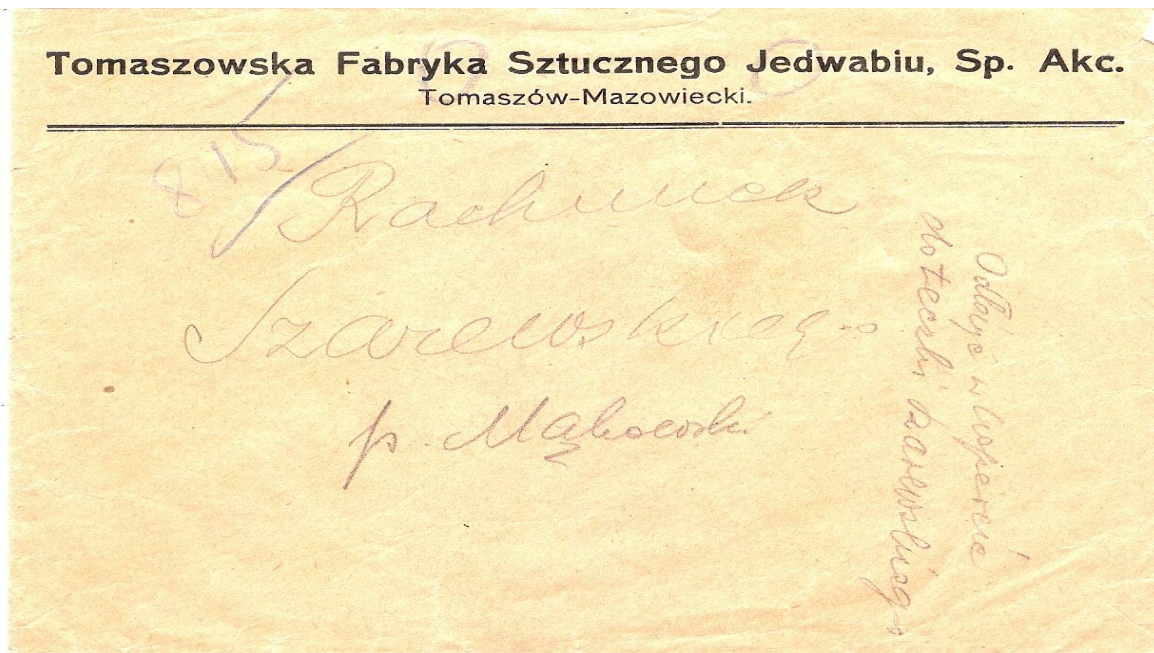 Tomaszowska Fabryka Sztucznego Jedwabiu, Sp. Akc.
Tomaszów-Mazowiecki.
815
Rachunek
Szarewskiego
p. Mąkowski
w kopercie
do teczki Szarewskiego